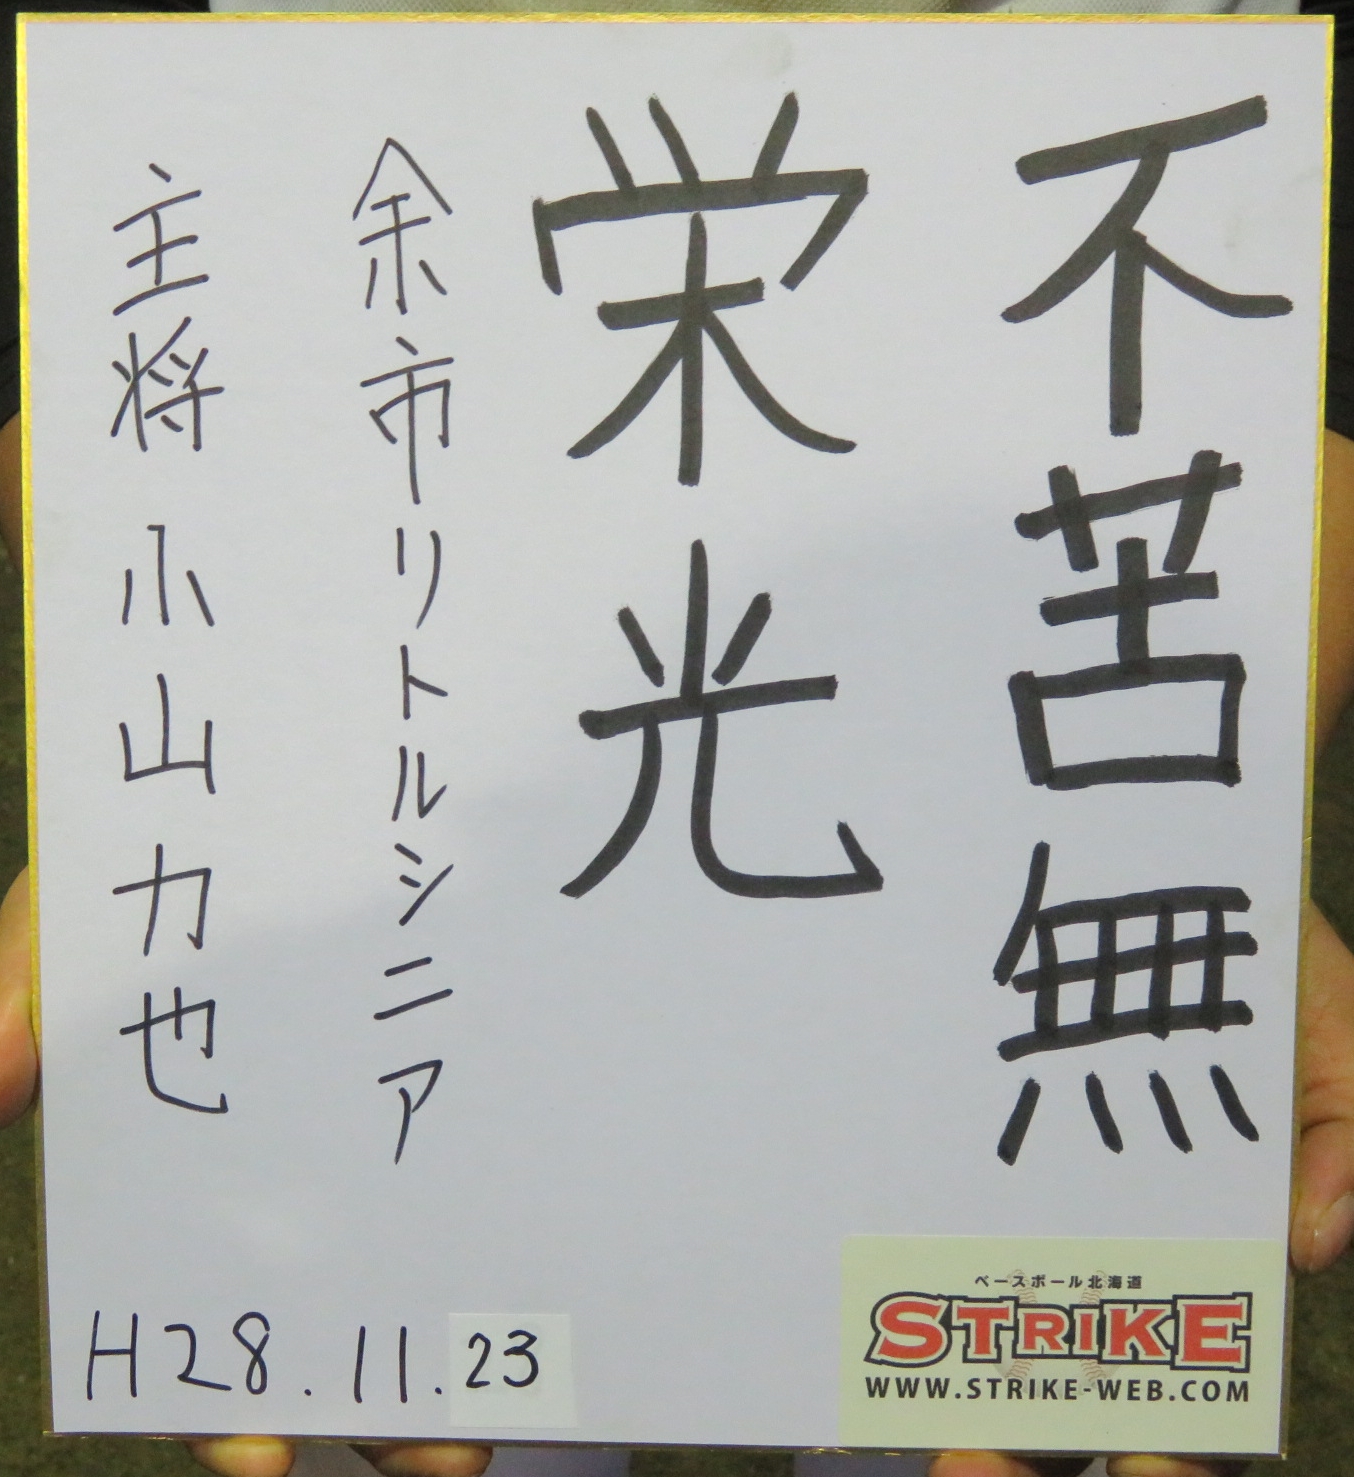 不苦無
栄光
余市リトルシニア
主将 小山力也
H28.11.23
ベースボール北海道
STRIKE
WWW.STRIKE-WEB.COM